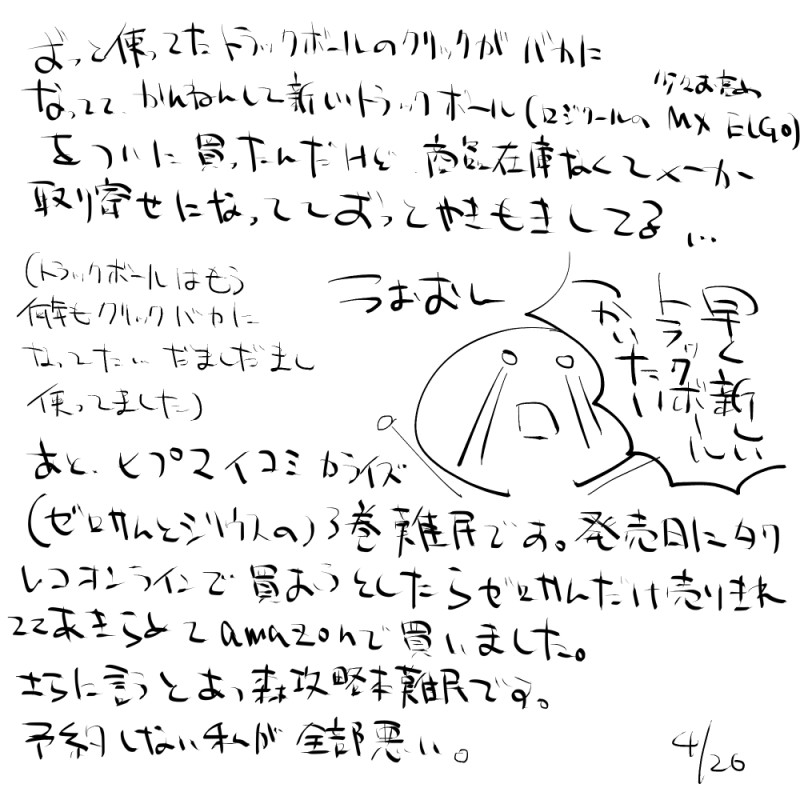 ずっと使ってたトラックボールのクリックがバカに
なってて、かんねんして新しいトラックボール(ロジクールの MX ERGO)
少々お高め
をついに買ったんだけど 商品在庫なくてメーカー
取り寄せになっててずっとやきもきしてる…
(トラックボールはもう
何年もクリックバカに
なってた… だましだまし
使ってました)
うおおん
早く新しい
トラックボール
つかいたい
あと、ヒプマイコミカライズ
(ゼロサンとシリウスの)3巻難民です。発売日にタワ
レコオンラインで買おうとしたらゼロサンだけ売りきれ
ててあきらめてamazonで買いました。
さらに言うとあつ森攻略本難民です。
予約しない私が全部悪い。
4/26